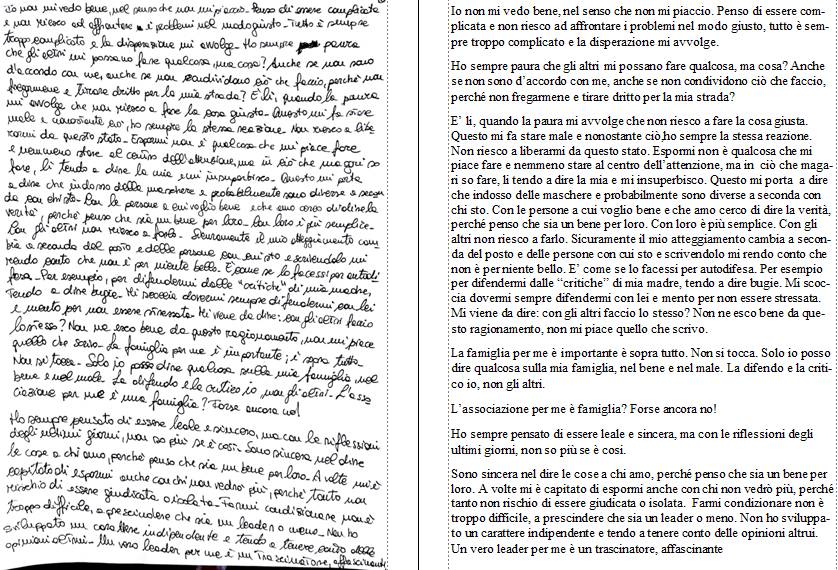 Io non mi vedo bene, nel senso che non mi piaccio. Penso di essere complicata
e non riesco ad affrontare i problemi nel modo giusto. Tutto è sempre
troppo complicato e la disperazione mi avvolge. Ho sempre paura
che gli altri mi possano fare qualcosa, ma cosa? Anche se non sono
d'accordo con me, anche se non condividono ciò che faccio, perché non
fregarmene e tirare dritto per la mia strada? È lì, quando la paura
mi avvolge che non riesco a fare la cosa giusta. Questo mi fa stare
male e nonostante ciò, ho sempre la stessa reazione. Non riesco a libe
rarmi da questo stato. Espormi non è qualcosa che mi piace fare
e nemmeno stare al centro dell'attenzione, ma in ciò che magari so
fare, lì tendo a dire la mia e mi insuperbisco. Questo mi porta
a dire che indosso delle maschere e probabilmente sono diverse a secon
da con chi sto. Con le persone a cui voglio bene e che amo cerco di dire la
verità, perché penso che sia un bene per loro. Con loro è più semplice.
Con gli altri non riesco a farlo. Sicuramente il mio atteggiamento cam
bia a seconda del posto e delle persone con cui sto e scrivendolo mi
rendo conto che non è per niente bello. È come se lo facessi per autodi
fesa. Per esempio, per difendermi dalle "critiche" di mia madre,
tendo a dire bugie. Mi scoccia dovermi sempre difendermi con lei
e mento per non essere stressata. Mi viene da dire: con gli altri faccio
lo stesso? Non ne esco bene da questo ragionamento, non mi piace
quello che scrivo. La famiglia per me è importante, è sopra tutto.
Non si tocca. Solo io posso dire qualcosa sulla mia famiglia, nel
bene e nel male. La difendo e la critico io, non gli altri. L'asso
ciazione per me è una famiglia? Forse ancora no!
Ho sempre pensato di essere leale e sincera, ma con le riflessioni
degli ultimi giorni, non so più se è così. Sono sincera nel dire
le cose a chi amo, perché penso che sia un bene per loro. A volte mi è
capitato di espormi anche con chi non vedrò più, perché tanto non
rischio di essere giudicata o isolata. Farmi condizionare non è
troppo difficile, a prescindere che sia un leader o meno. Non ho
sviluppato un carattere indipendente e tendo a tenere conto delle
opinioni altrui. Un vero leader per me è un trascinatore, affascinante
Io non mi vedo bene, nel senso che non mi piaccio. Penso di essere com-
plicata e non riesco ad affrontare i problemi nel modo giusto, tutto è sem-
pre troppo complicato e la disperazione mi avvolge.
Ho sempre paura che gli altri mi possano fare qualcosa, ma cosa? Anche
se non sono d'accordo con me, anche se non condividono ciò che faccio,
perché non fregarmene e tirare dritto per la mia strada?
E' lì, quando la paura mi avvolge che non riesco a fare la cosa giusta.
Questo mi fa stare male e nonostante ciò,ho sempre la stessa reazione.
Non riesco a liberarmi da questo stato. Espormi non è qualcosa che mi
piace fare e nemmeno stare al centro dell'attenzione, ma in ciò che maga-
ri so fare, li tendo a dire la mia e mi insuperbisco. Questo mi porta a dire
che indosso delle maschere e probabilmente sono diverse a seconda con
chi sto. Con le persone a cui voglio bene e che amo cerco di dire la verità,
perché penso che sia un bene per loro. Con loro è più semplice. Con gli
altri non riesco a farlo. Sicuramente il mio atteggiamento cambia a secon-
da del posto e delle persone con cui sto e scrivendolo mi rendo conto che
non è per niente bello. E' come se lo facessi per autodifesa. Per esempio
per difendermi dalle "critiche" di mia madre, tendo a dire bugie. Mi scoc-
cia dovermi sempre difendermi con lei e mento per non essere stressata.
Mi viene da dire: con gli altri faccio lo stesso? Non ne esco bene da que-
sto ragionamento, non mi piace quello che scrivo.
La famiglia per me è importante è sopra tutto. Non si tocca. Solo io posso
dire qualcosa sulla mia famiglia, nel bene e nel male. La difendo e la criti-
co io, non gli altri.
L'associazione per me è famiglia? Forse ancora no!
Ho sempre pensato di essere leale e sincera, ma con le riflessioni degli
ultimi giorni, non so più se è così.
Sono sincera nel dire le cose a chi amo, perché penso che sia un bene per
loro. A volte mi è capitato di espormi anche con chi non vedrò più, perché
tanto non rischio di essere giudicata o isolata. Farmi condizionare non è
troppo difficile, a prescindere che sia un leader o meno. Non ho sviluppa-
to un carattere indipendente e tendo a tenere conto delle opinioni altrui.
Un vero leader per me è un trascinatore, affascinante